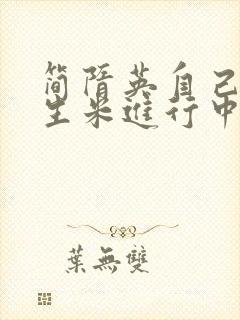 简隋英自己
生米进行中
葉無雙